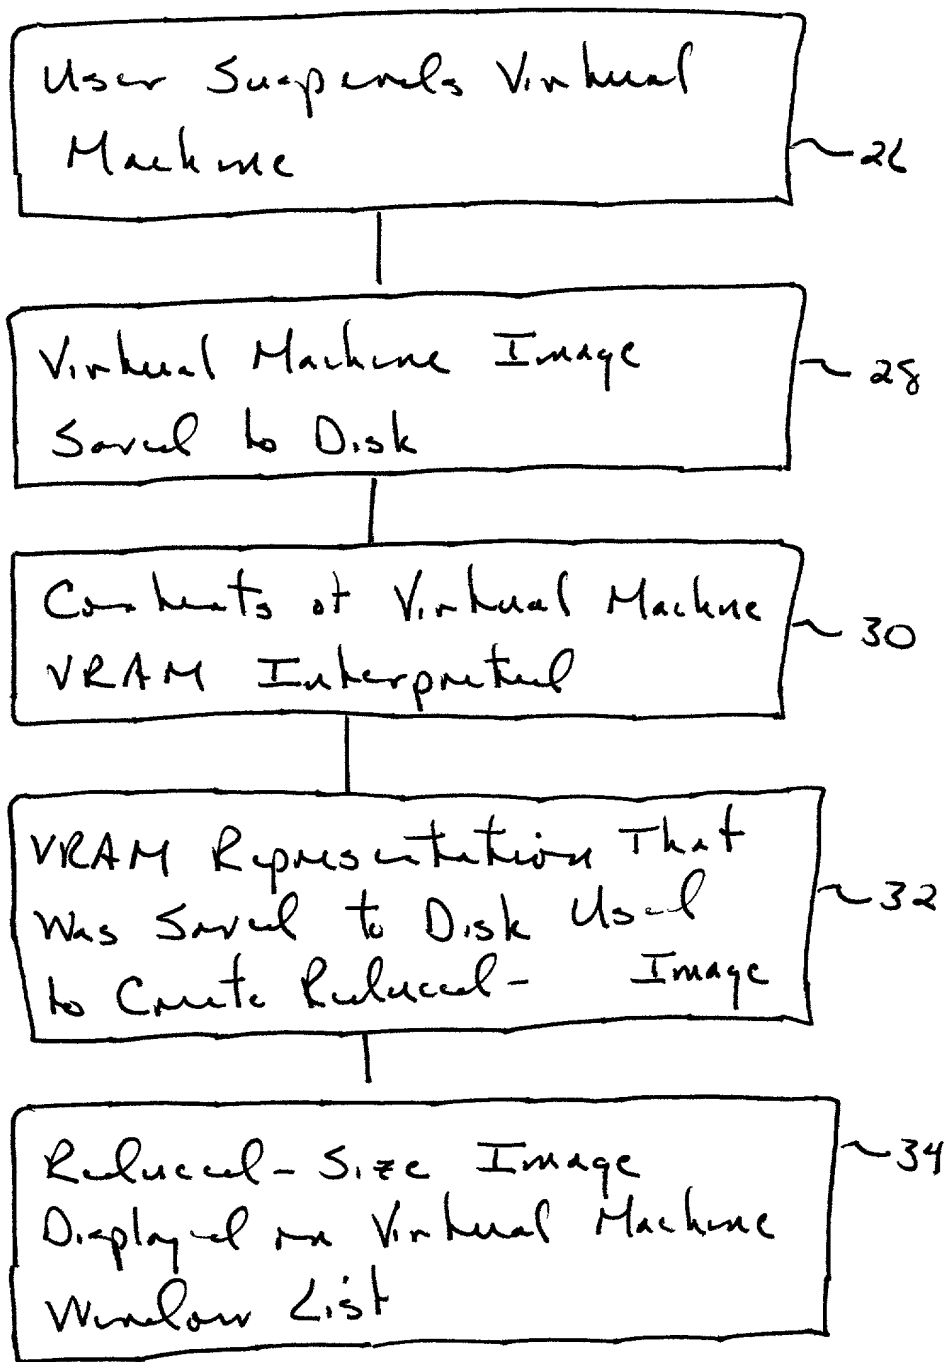 User Suspends Virtual
Machine
26
Virtual Machine Image
28
Saved to Disk
Contents of Virtual Machine
30
VRAM Interpreted
VRAM Representation That
32
Was Saved to Disk Used
to Create Reduced- Image
Reduced-Size Image
34
Displayed in Virtual Machine
Window List